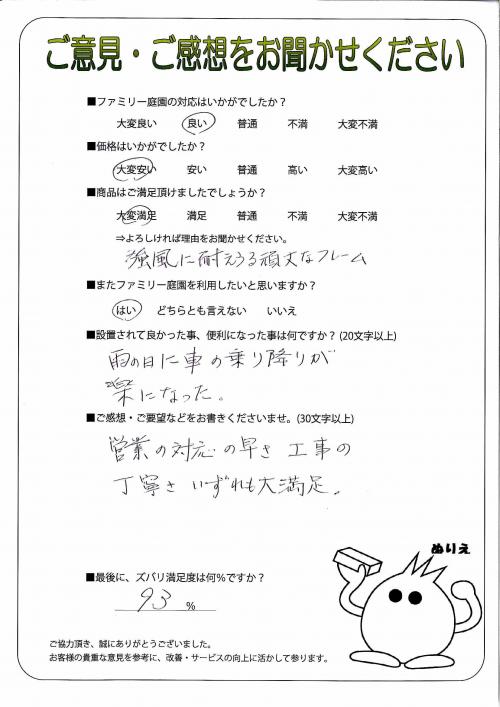 ご意見・ご感想をお聞かせください
■ファミリー庭園の対応はいかがでしたか？
大変良い 良い 普通 不満 大変不満
■価格はいかがでしたか？
大変安い 安い 普通 高い 大変高い
■商品はご満足頂けましたでしょうか？
大変満足 満足 普通 不満 大変不満
⇒よろしければ理由をお聞かせください。
強風に耐えうる頑丈なフレーム
■またファミリー庭園を利用したいと思いますか？
はい どちらとも言えない いいえ
■設置されて良かった事、便利になった事は何ですか？(20文字以上)
雨の日に車の乗り降りが
楽になった。
■ご感想・ご要望などをお書きくださいませ。(30文字以上)
営業の対応の早さ 工事の
丁寧さ いずれも大満足。
ぬりえ
■最後に、ズバリ満足度は何%ですか？
93 %
ご協力頂き、誠にありがとうございました。
お客様の貴重な意見を参考に、改善・サービスの向上に活かして参ります。